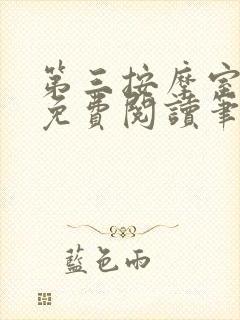 第三按摩室
免費閱讀筆
藍色雨